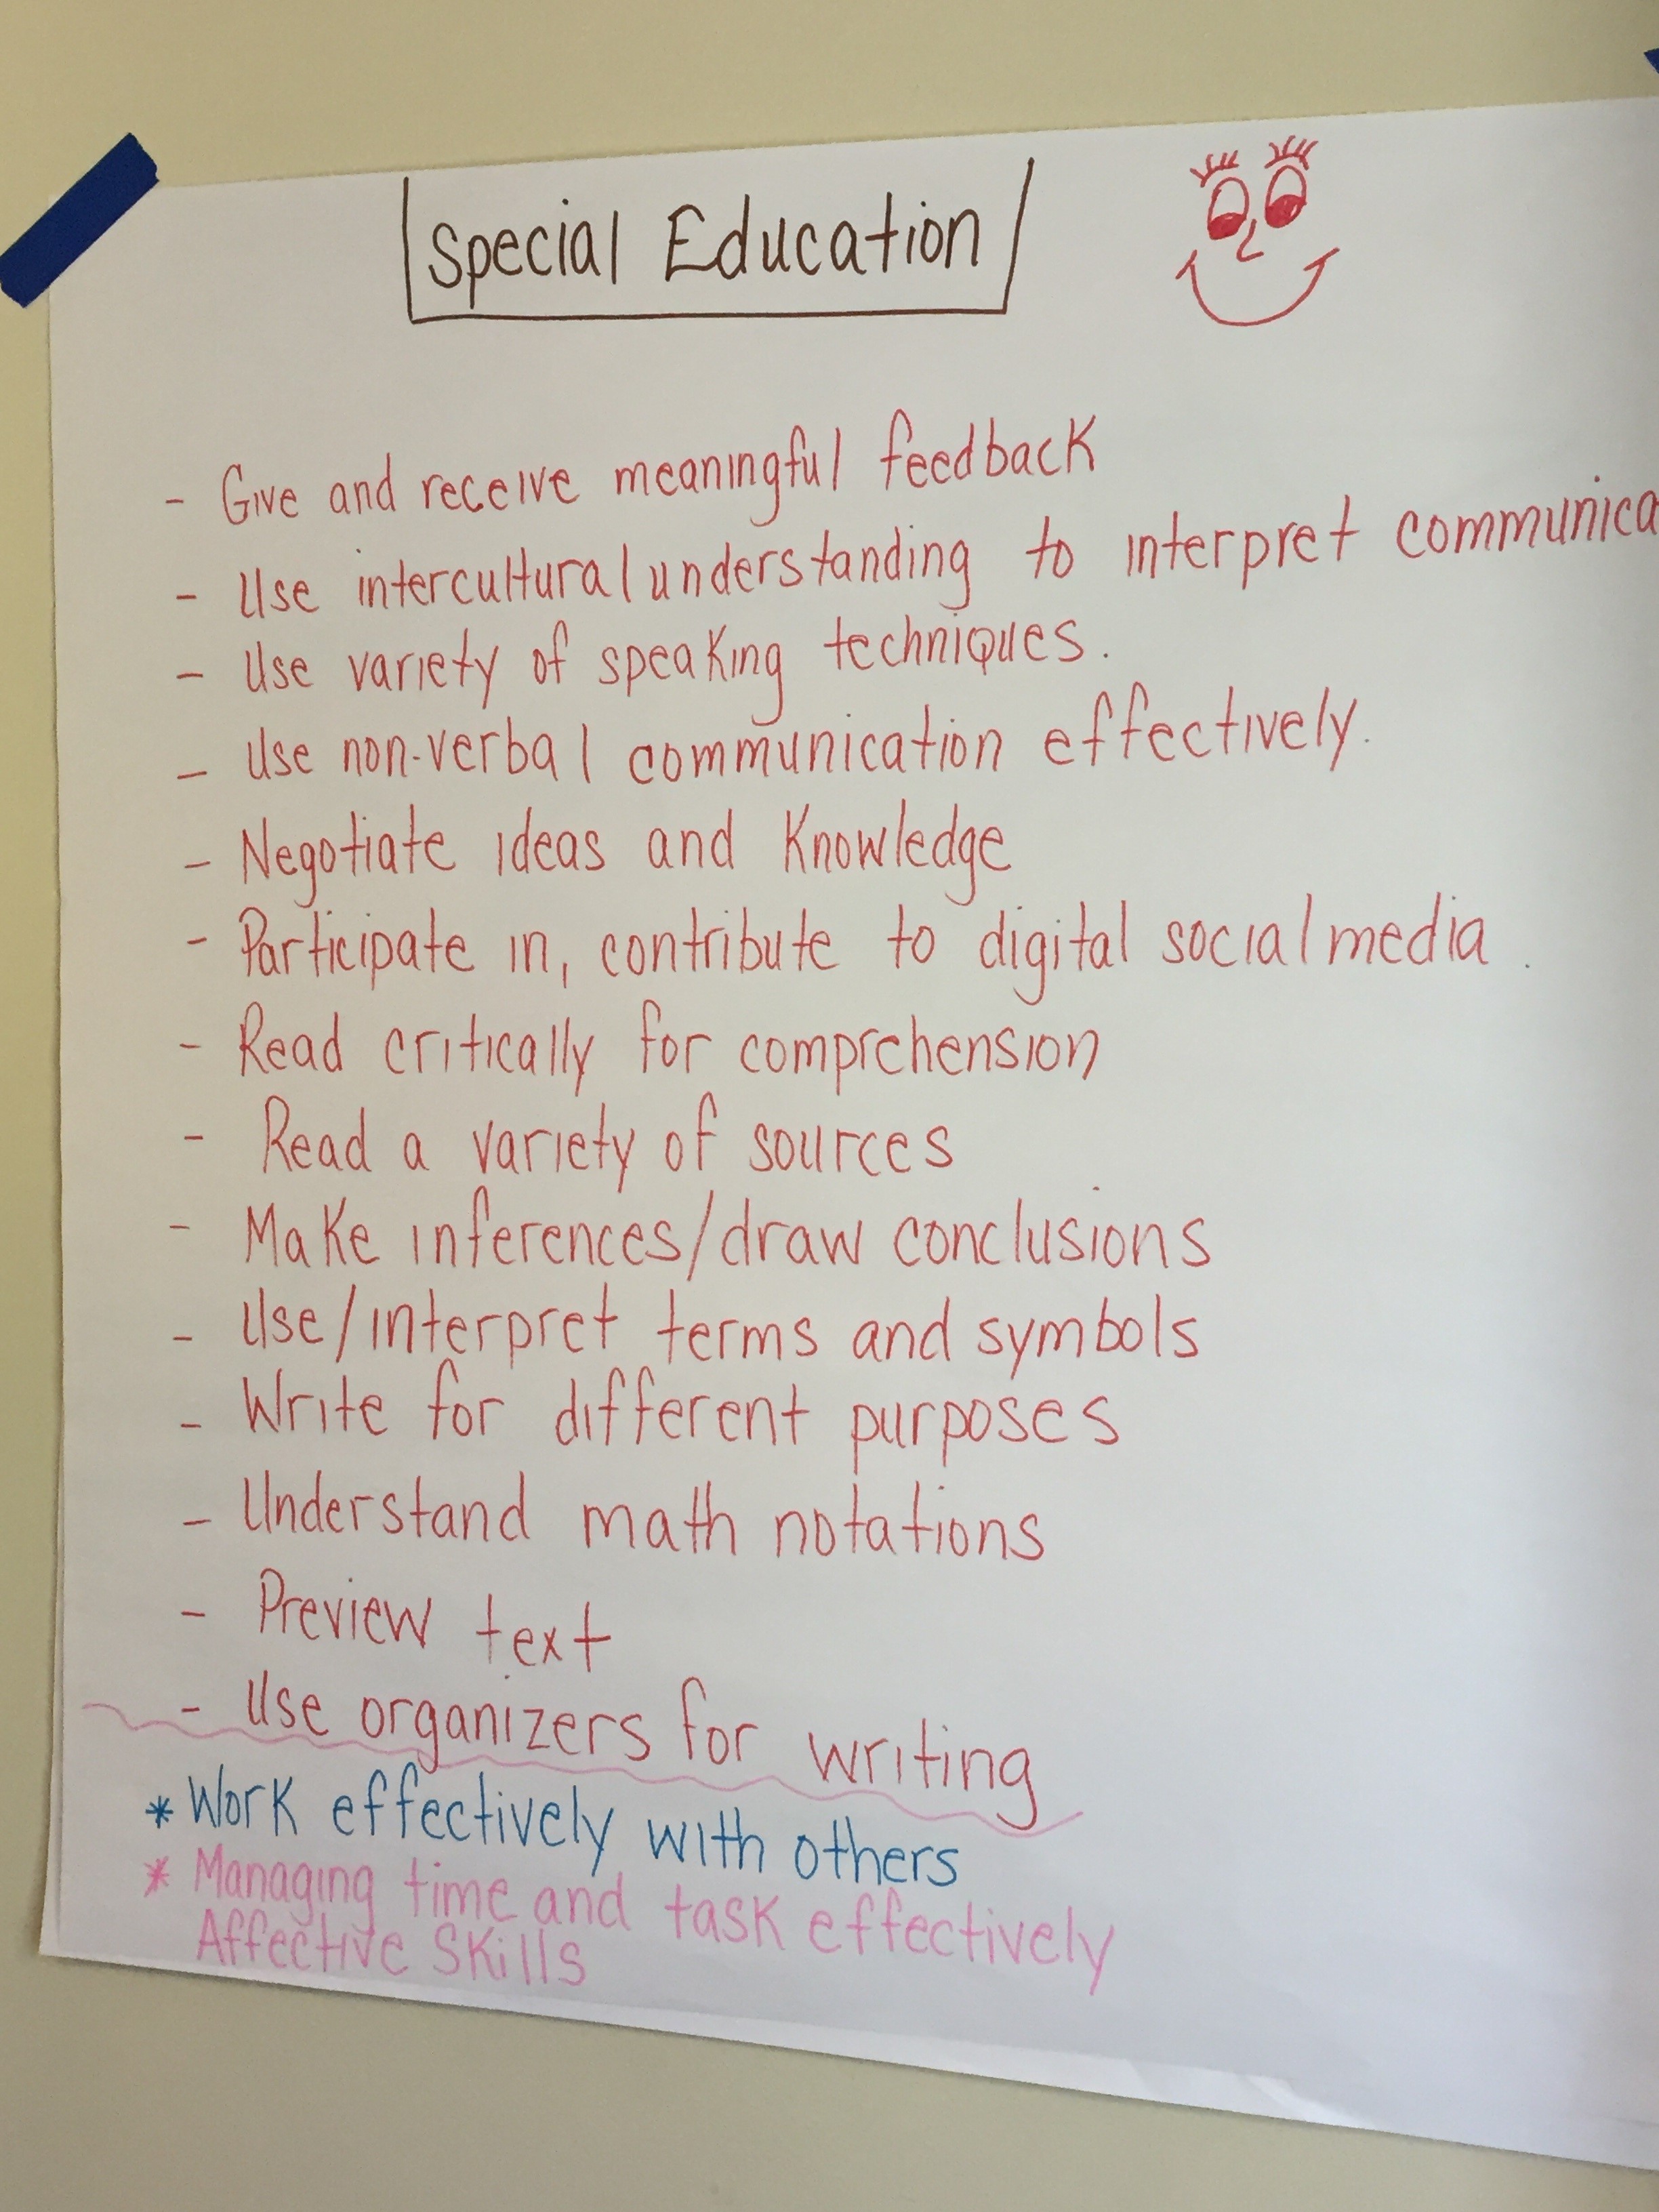 Special Education
- Give and receive meaningful feedback
- Use intercultural understanding to interpret communica
- Use variety of speaking techniques.
- Use non-verbal communication effectively.
- Negotiate ideas and Knowledge
- Participate in, contribute to digital social media.
- Read critically for comprehension
- Read a variety of sources
- Make inferences/draw conclusions
- Use/interpret terms and symbols
- Write for different purposes
- Understand math notations
- Preview text
- Use organizers for writing
* Work effectively with others
* Managing time and task effectively
Affective Skills